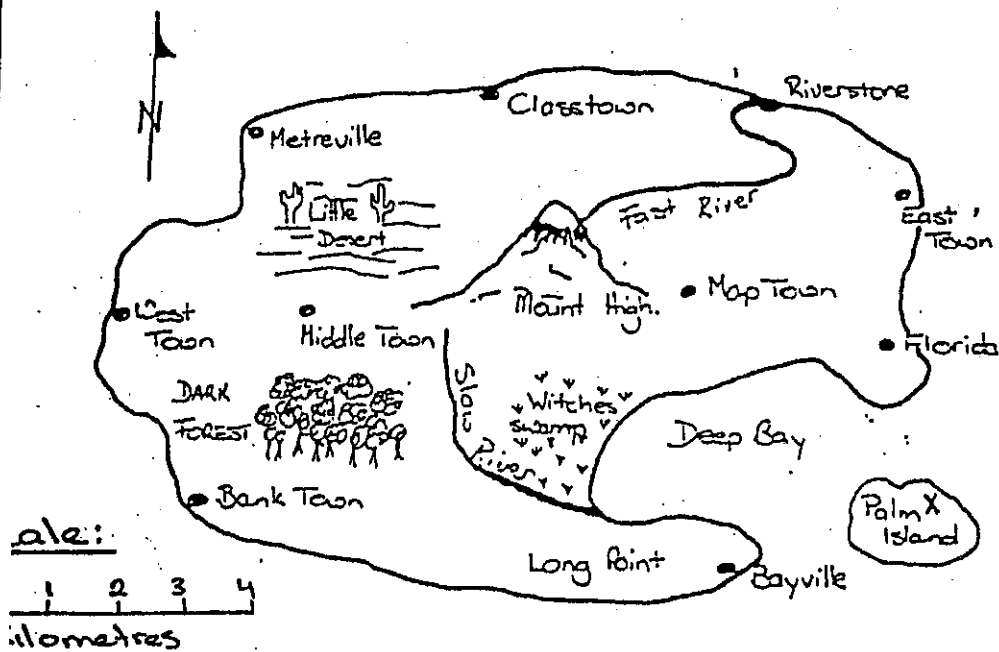 N
Metreville
Classtown
Riverstone
Little
Desert
Fast River
East
Town
West
Town
Middle Town
Mount High.
Map Town
Florida
DARK
FOREST
Slow
River
Witches
swamp
Deep Bay
Bank Town
Palm X
Island
Long Point
Bayville
ale:
1 2 3 4
ilometres